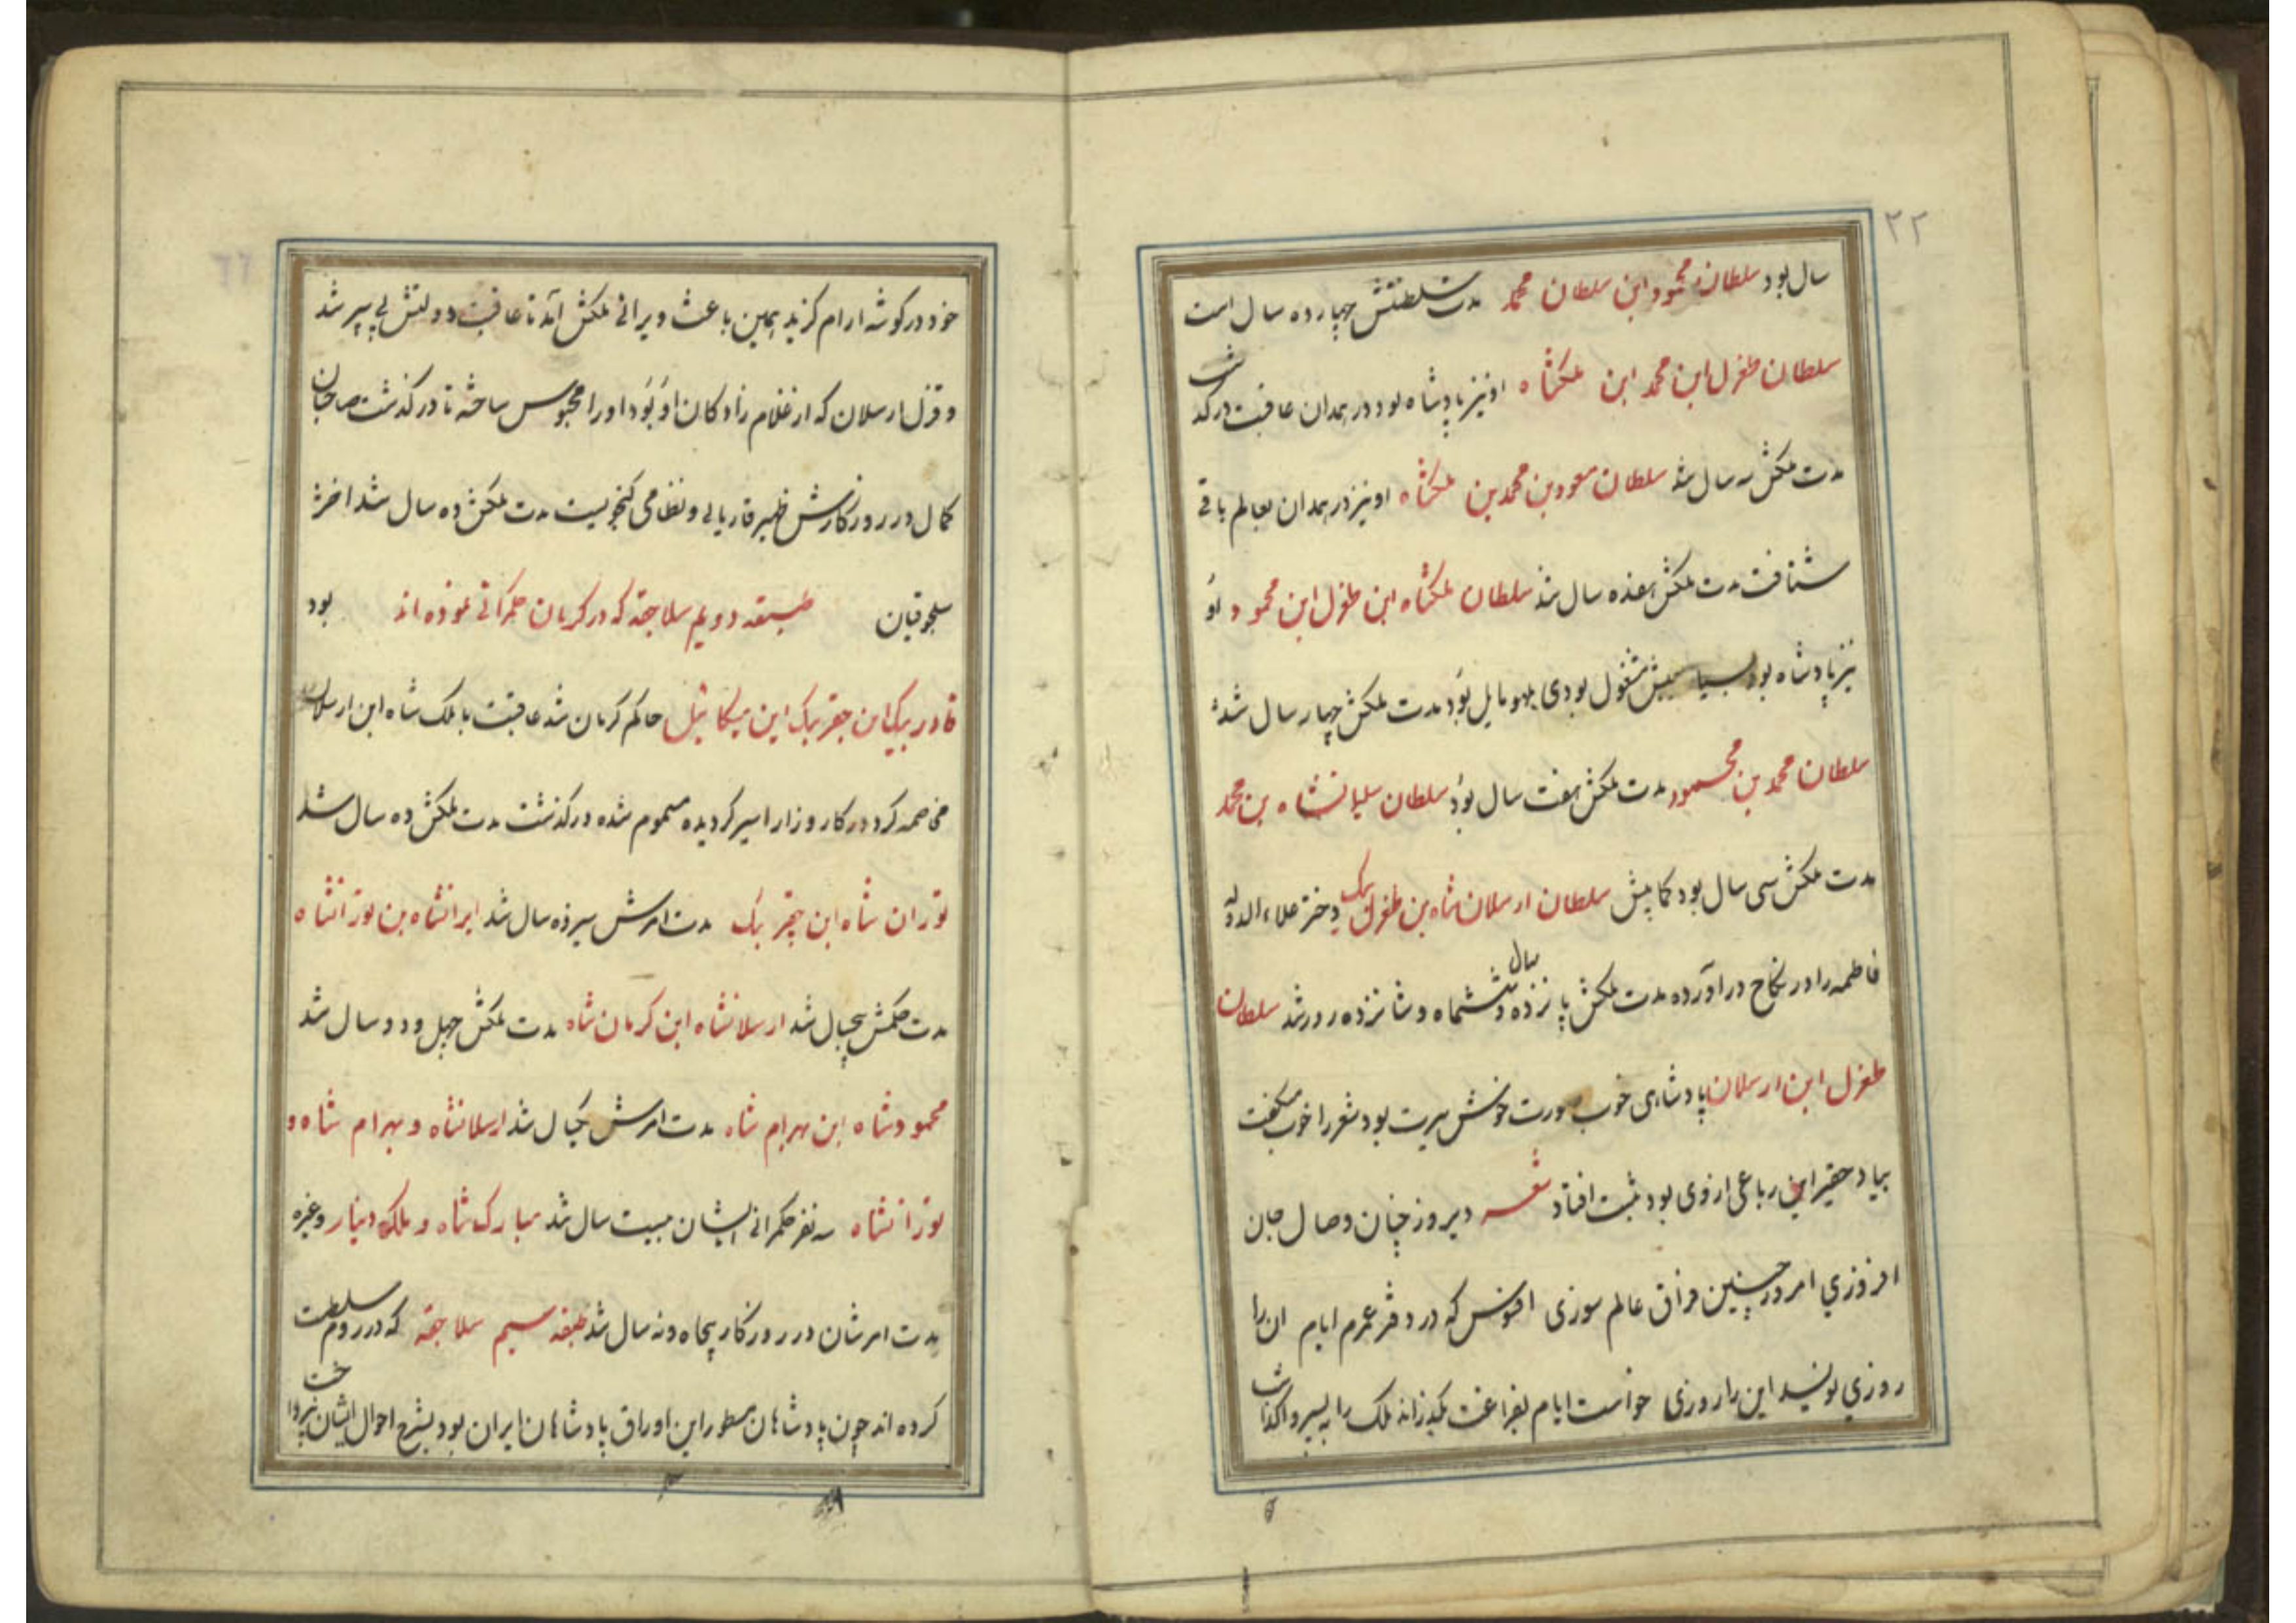 ۲۲
سال بود سلطان محمود ابن سلطان محمد مدت سلطنتش چهارده سال است
سلطان طغرل ابن محمد ابن ملکشاه او نیز پادشاه بود در همدان عاقبت درکذشت
مدت ملکش سه سال شد سلطان مسعود بن محمد بن ملکشاه او نیز در همدان بعالم باقی
شتافت مدت ملکش هفده سال شد سلطان ملکشاه ابن طغرل ابن محمود او
نیز پادشاه بود بسیا عیش مشغول بودی بلهو مایل بود مدت ملکش چهار سال شد
سلطان محمد بن محمود مدت ملکش هفت سال بود سلطان سلیمانشاه بن محمد
مدت ملکش سی سال بود کمابیش سلطان ارسلان شاه بن طغرل بیک دختر علاء الدوله
فاطمه را در نکاح دراورده مدت ملکش پانزده سال و ششماه و شانزده روز شد سلطان
طغرل ابن ارسلان پادشاهی خوب صورت خوش سیرت بود شعر را خوب میکفت
بیاد حقیر این رباعی از وی بود ثبت افتاد شعر دیروز چنان وصال جان
افروزی امروز چنین فراق عالم سوزی افسوس که در دفتر عمرم ایام ان را
روزی نویسد این را روزی خواست ایام بفراغت بکذراند ملک را به پسر واکذاشت
خود در کوشه ارام کزید همین باعث ویرانی ملکش آمد تا عاقبت دولتش پی سپر شد
و قزل ارسلان که از غلام زادکان او بود او را محبوس ساخته تا درکذشت صاحبان
کمال در روزکارش ظهیر فاریابی و نظامی کنجویست مدت ملکش ده سال شد اخر
سلجوقیان طبقه دویم سلاجقه که در کرمان حکمرانی نموده اند بود
قادر بیک ابن جقر بیک ابن میکائیل حاکم کرمان شد عاقبت با ملک شاه ابن ارسلان
مخاصمه کرد در کاروزار اسیر کردیده مسموم شده درکذشت مدت ملکش ده سال شد
توران شاه ابن چقر بک مدت امرش سیزده سال شد ایرانشاه بن تورانشاه
مدت حکمش پنجسال شد ارسلانشاه ابن کرمان شاه مدت ملکش چهل و دو سال شد
محمود شاه ابن بهرام شاه مدت امرش یکسال شد ارسلانشاه و بهرام شاه و
تورانشاه سه نفر حکمرانی ایشان بیست سال شد مبارک شاه و ملک دینار و غیره
مدت امرشان در روزکار پنجاه و نه سال شد طبقه سیم سلاجقه که در روم سلطنت
کرده اند چون پادشاهان مسطور این اوراق پادشاهان ایران بود بشرح احوال ایشان نپرداخت